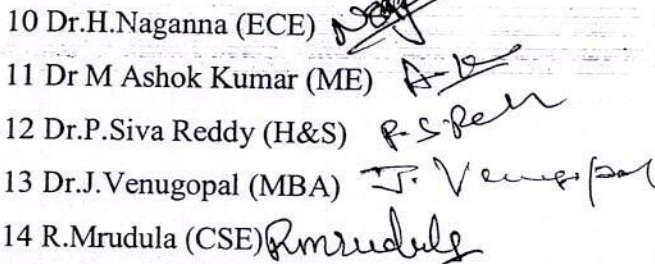 10 Dr.H.Naganna (ECE)
11 Dr M Ashok Kumar (ME) A-K
12 Dr.P.Siva Reddy (H&S) P.S.Reddy
13 Dr.J.Venugopal (MBA) J. Venugopal
14 R.Mrudula (CSE) Rmrudula